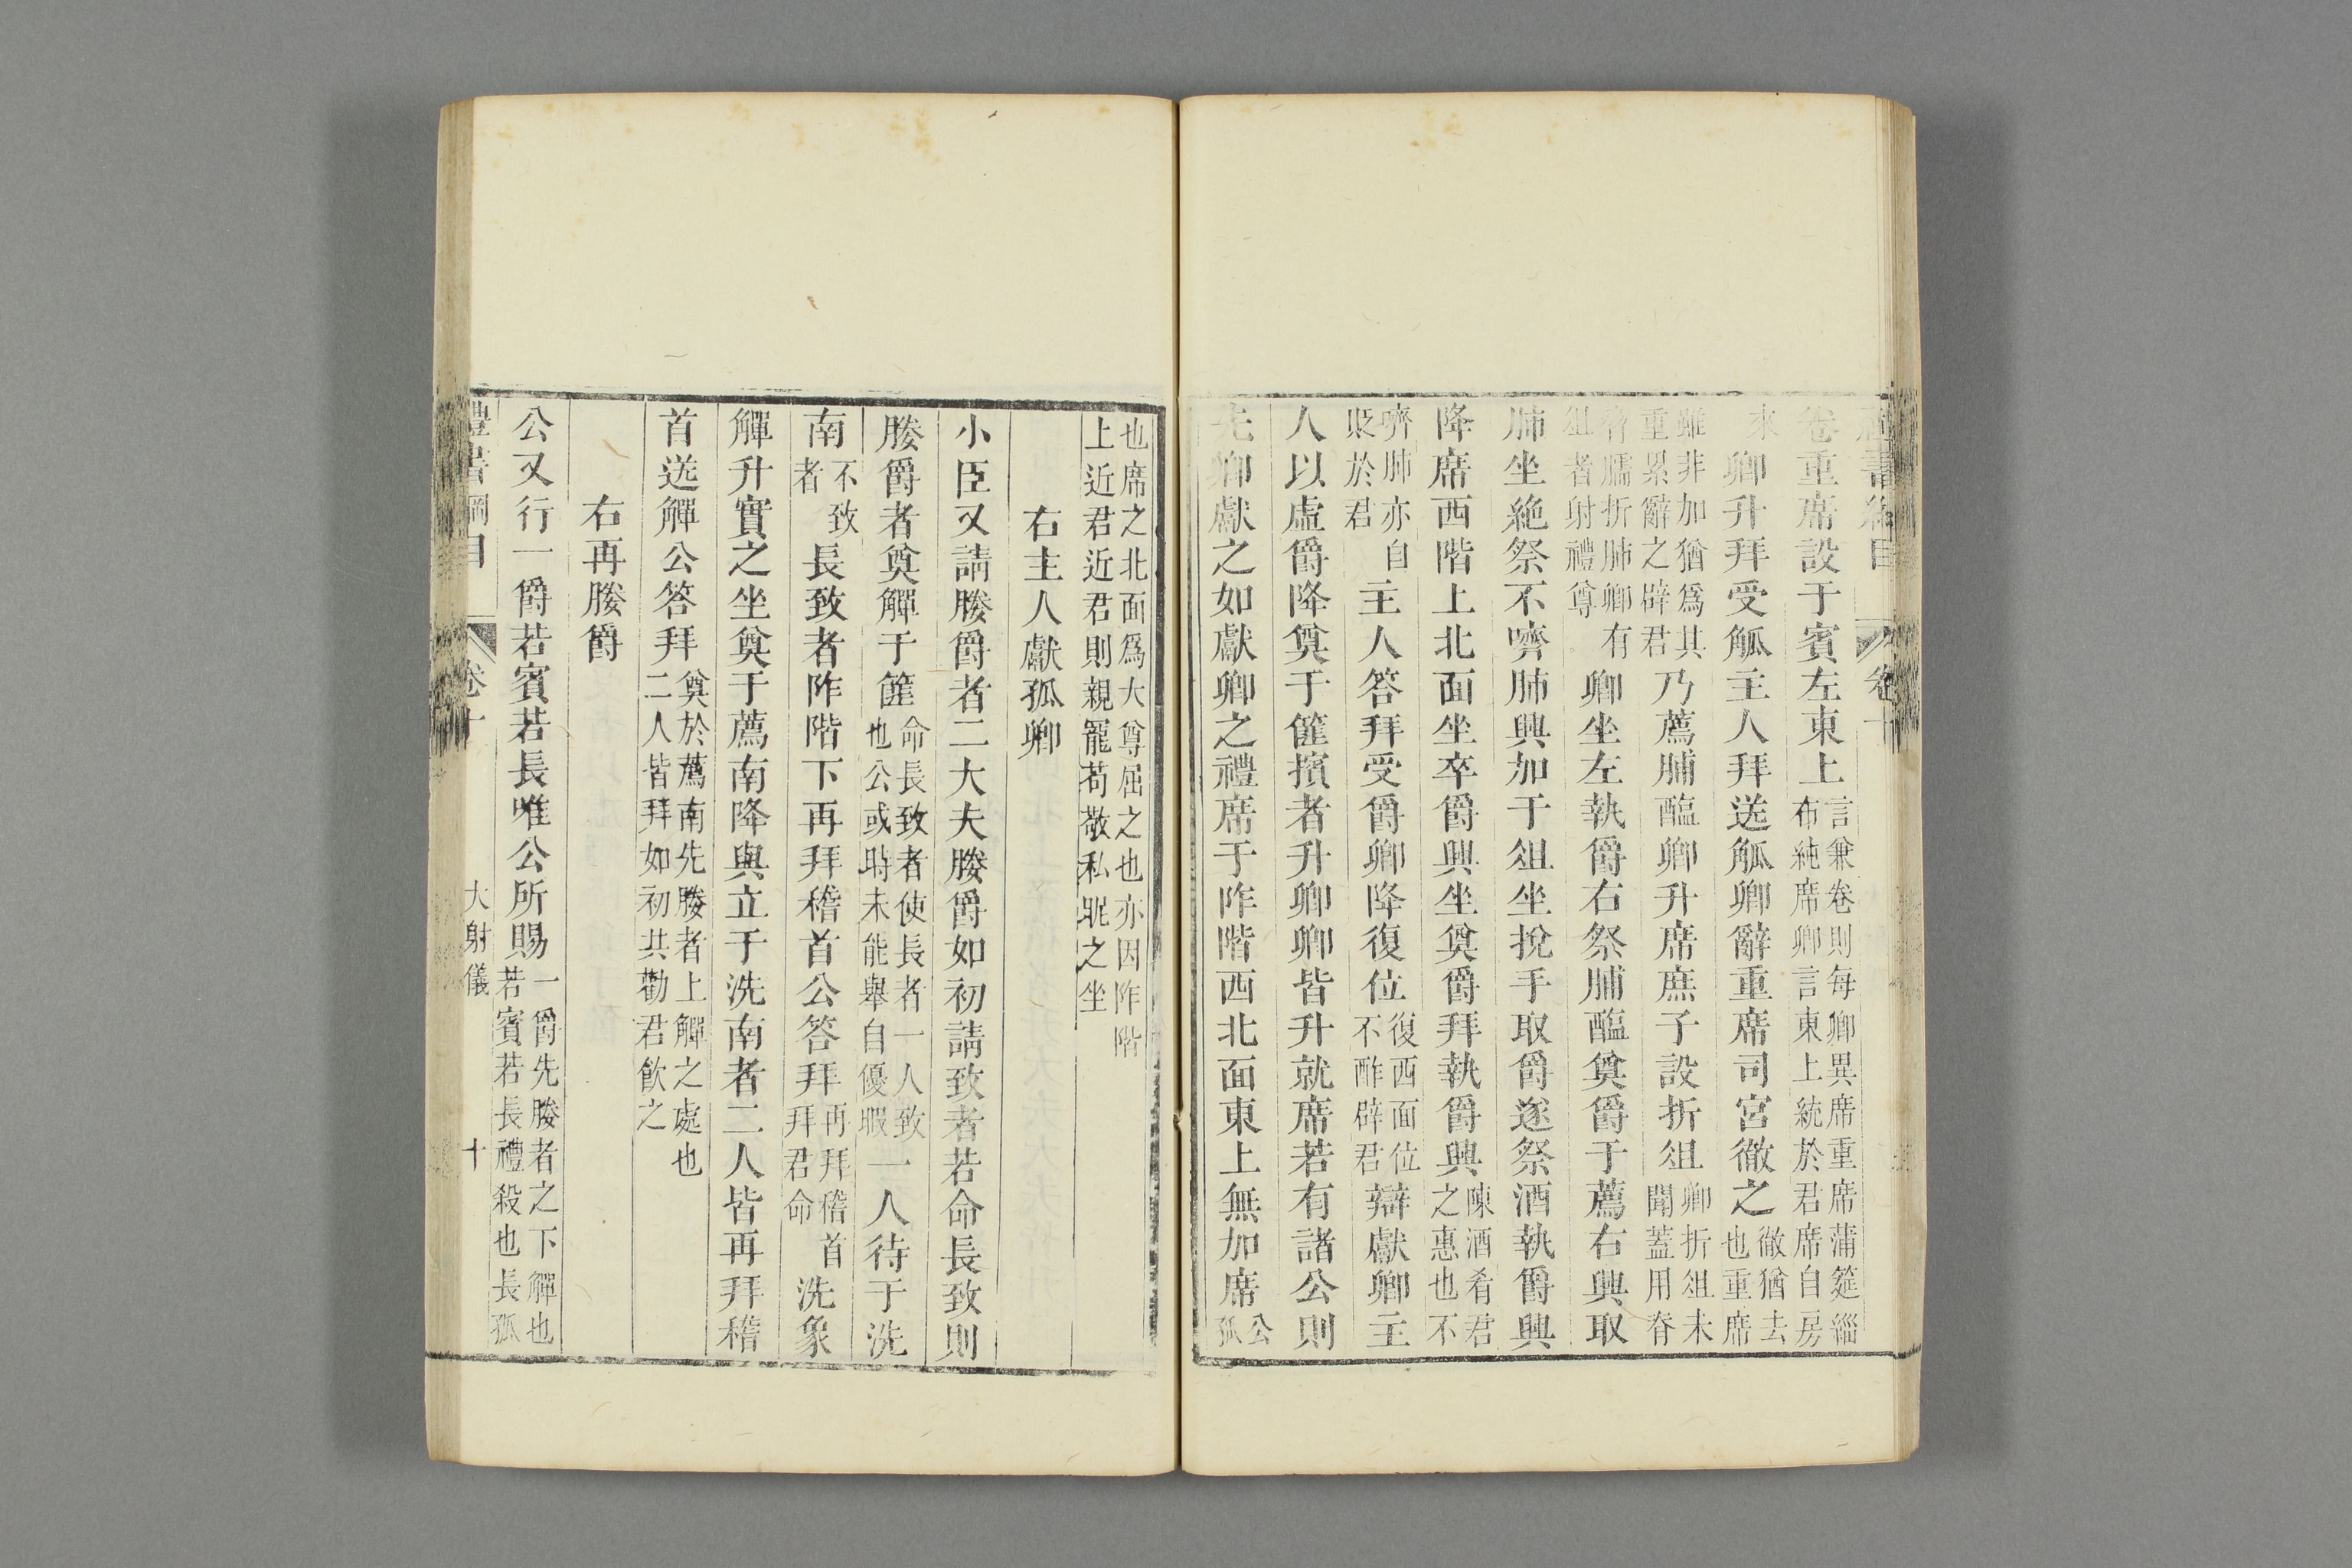 禮書綱目 卷十
卷重席設于賓左東上言兼卷則每卿異席重席蒲筵緇布純席卿言東上統於君席自房
來卿升拜受觚主人拜送觚卿辭重席司宮徹之徹猶去也重席
雖非加猶爲其重累辭之辟君乃薦脯醢卿升席庶子設折俎卿折俎未聞蓋用脊
脅臑折肺卿有俎者射禮尊卿坐左執爵右祭脯醢奠爵于薦右興取
肺坐絶祭不嚌肺興加于俎坐挩手取爵遂祭酒執爵興
降席西階上北面坐卒爵興坐奠爵拜執爵興陳酒肴君之惠也不
嚌肺亦自貶於君主人答拜受爵卿降復位復西面位不酢辟君辯獻卿主
人以虛爵降奠于篚擯者升卿卿皆升就席若有諸公則
先卿獻之如獻卿之禮席于阼階西北面東上無加席公孤
也席之北面爲大尊屈之也亦因阼階上近君近君則親寵苟敬私昵之坐
右主人獻孤卿
小臣又請媵爵者二大夫媵爵如初請致者若命長致則
媵爵者奠觶于篚命長致者使長者一人致也公或時未能舉自優暇一人待于洗
南不致者長致者阼階下再拜稽首公答拜再拜稽首拜君命洗象
觶升實之坐奠于薦南降與立于洗南者二人皆再拜稽
首送觶公答拜奠於薦南先媵者上觶之處也二人皆拜如初共勸君飲之
右再媵爵
公又行一爵若賓若長唯公所賜一爵先媵者之下觶也若賓若長禮殺也長孤
禮書綱目 卷十 大射儀 十